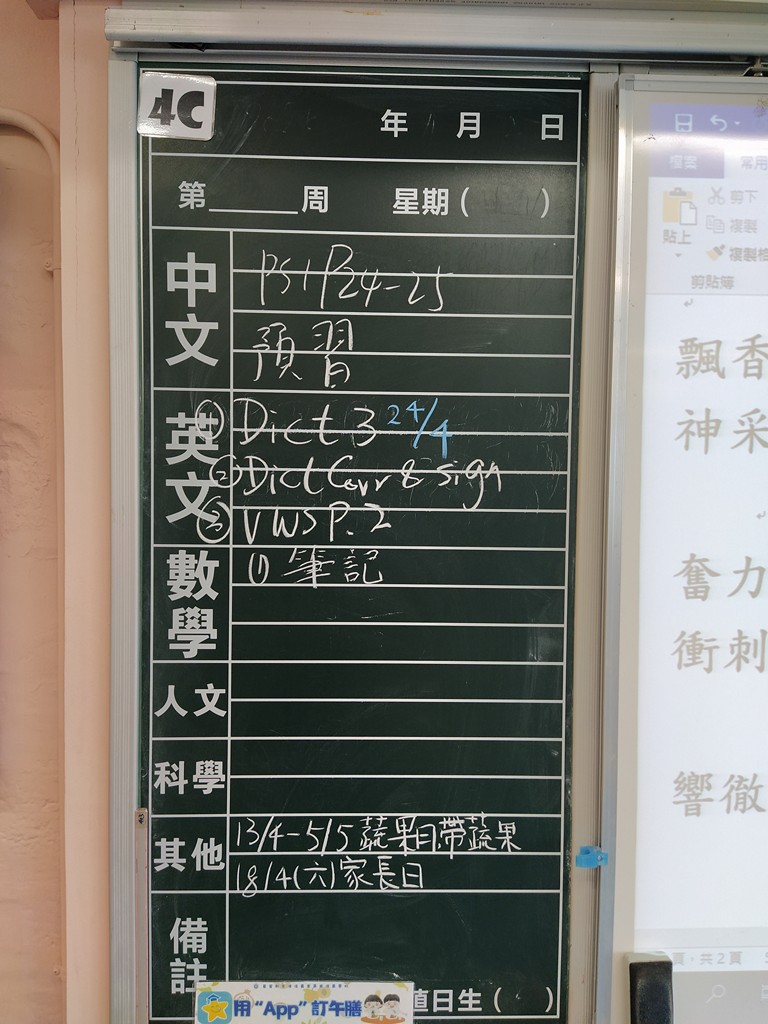 4C
年 月 日
第____周 星期( )
中文
PS1 P24-25
預習
英文
① Dict 3 24/4
② Dict Corr & sign
③ VWS P.2
數學
(1) 筆記
人文
科學
其他
13/4-5/5 蔬果日,帶蔬果
18/4(六)家長日
備註
值日生( )
用“App”訂午膳
檔案 常用
貼上
剪下
複製
複製格
剪貼簿
飄香
神采
奮力
衝刺
響徹
頁,共2頁